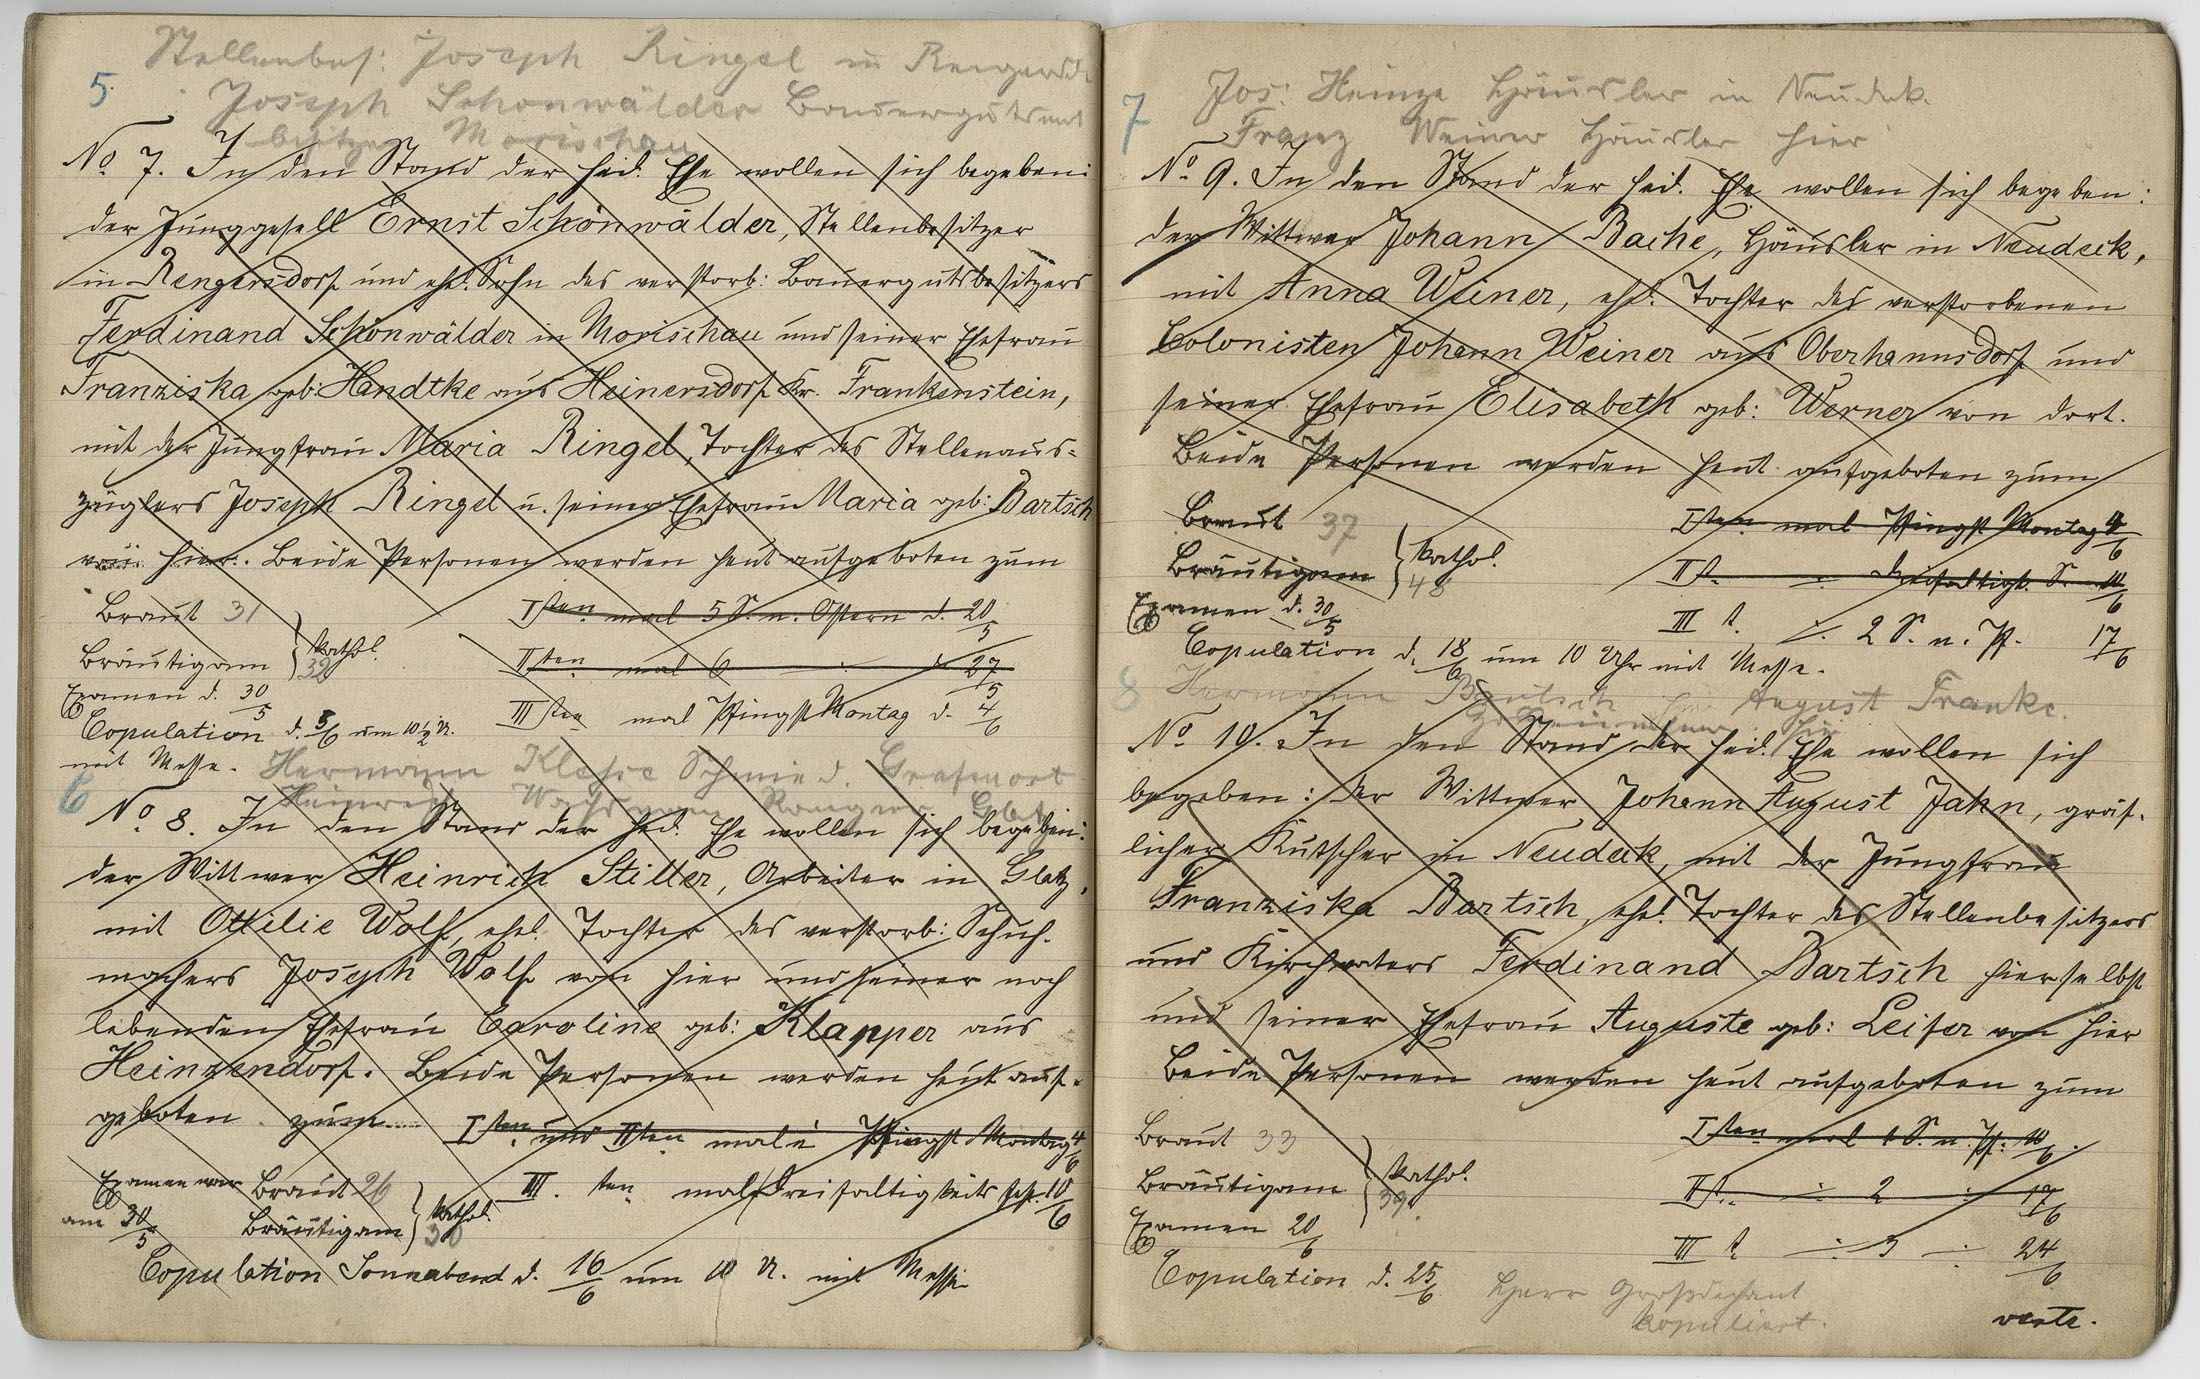 Stellenbes: Joseph Ringel in Rengersd.
5.
Joseph Schönwälder Bauerguts und
besitzer Morischau
No. 7. In den Stand der heil. Ehe wollen sich begeben:
der Junggesell Ernst Schönwälder, Stellenbesitzer
in Rengersdorf und ehel. Sohn des verstorb: Bauergutsbesitzers
Ferdinand Schönwälder in Morischau und seiner Ehefrau
Franziska geb: Handtke aus Heinersdorf Kr. Frankenstein,
mit der Jungfrau Maria Ringel, Tochter des Stellenaus-
züglers Joseph Ringel u. seiner Ehefrau Maria geb: Bartsch
von hier. Beide Personen werden heut aufgeboten zum
Braut 31
Bräutigam 32 } kathol.
Isten mal 5 S. n. Ostern d. 20/5
IIten mal 6 ÷ ÷ 27/5
IIIten mal Pfingst Montag d. 4/6
Examen d. 30/5
Copulation d. 5/6 um 10 1/2 U.
mit Messe.
6
Hermann Klesse Schmied. Grafenort
Heinrich Glatz
No. 8. In den Stand der heil. Ehe wollen sich begeben:
der Wittwer Heinrich Stiller, Arbeiter in Glatz,
mit Ottilie Wolf, ehel. Tochter des verstorb: Schuh-
machers Joseph Wolf von hier und seiner noch
lebenden Ehefrau Caroline geb: Klapper aus
Heinzendorf. Beide Personen werden heut auf-
geboten zum
Isten und IIten male Pfingst Montag 4/6
III. ten mal Dreifaltigkeits Fest. 10/6
Examen war Braut 26
am 30/5 Bräutigam 30 } kathol.
Copulation Sonnabend d. 16/6 um 10 U. mit Messe
7
Jos: Heinze Häusler in Neudeck.
Franz Weiner Häusler hier
No. 9. In den Stand der heil. Ehe wollen sich begeben:
der Wittwer Johann Bache, Häusler in Neudeck,
mit Anna Weiner, ehel. Tochter des verstorbenen
Colonisten Johann Weiner aus Oberhannsdorf und
seiner Ehefrau Elisabeth geb: Werner von dort.
Beide Personen werden heut aufgeboten zum
Braut 37
Bräutigam 48 } kathol.
Isten mal Pfingst Montag 4/6
II t. ÷ Dreifaltigk. S. 10/6
III t. ÷ 2 S. n. Pf. 17/6
Examen d. 30/5
Copulation d. 18/6 um 10 Uhr mit Messe.
8
Hermann Bartsch August Franke.
No. 10. In den Stand der heil. Ehe wollen sich
begeben: der Wittwer Johann August Jahn, gräf-
licher Kutscher in Neudeck, mit der Jungfrau
Franziska Bartsch, ehel. Tochter des Stellenbesitzers
und Kirchvaters Ferdinand Bartsch hierselbst
und seiner Ehefrau Auguste geb: Leifer von hier
Beide Personen werden heut aufgeboten zum
Braut 33
Bräutigam 39. } kathol.
Isten mal 1 S. n. Pf. 10/6.
II t. ÷ 2 ÷ 17/6
III t ÷ 3 ÷ 24/6
Examen 20/6
Copulation d. 25/6
Herr Großdechant
kopuliert.
verte.